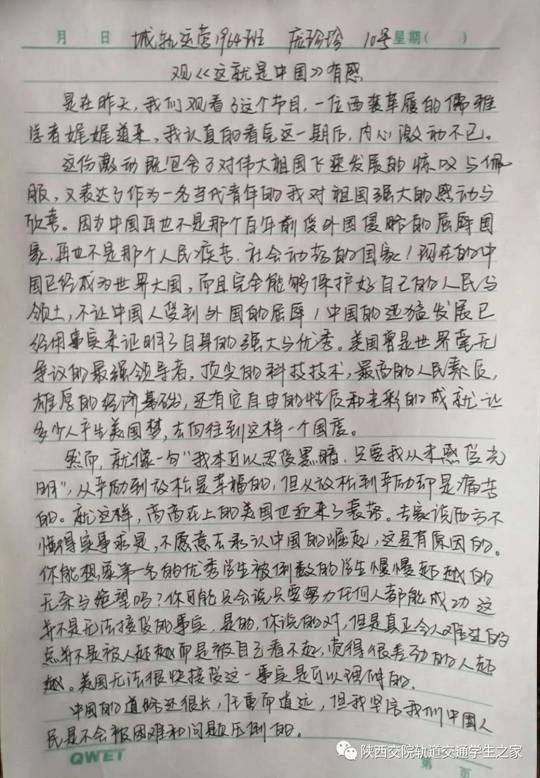 月 日 城轨运营1964班 庞珍珍 10号 星期( )
观《这就是中国》有感
是在昨天,我们观看了这个节目,一位西装革履的儒雅
学者娓娓道来,我认真的看完这一期后,内心激动不已。
这份激动既包含了对伟大祖国飞速发展的惊叹与佩
服,又表达了作为一名当代青年的我对祖国强大的感动与
欣喜。因为中国再也不是那个百年前受外国侵略的屈辱国
家,再也不是那个人民疾苦、社会动荡的国家!现在的中
国已经成为世界大国,而且完全能够保护好自己的人民与
领土,不让中国人受到外国的屈辱!中国的迅猛发展已
经用事实来证明了自身的强大与优秀。美国曾是世界毫无
争议的最强领导者,顶尖的科技技术,最高的人民素质,
雄厚的经济基础,还有它自由的性质和光彩的成就让
多少人产生美国梦,去向往到这样一个国度。
然而,就像一句"我本可以忍受黑暗,只要我从未感受光
明",从辛勤到放松是幸福的,但从放松到辛勤却是痛苦
的。就这样,高高在上的美国也迎来了衰落。专家说西方不
懂得实事求是,不愿意去承认中国的崛起,这是有原因的。
你能想象第一名的优秀学生被倒数的学生慢慢超越的
无奈与绝望吗?你可能只会说只要努力任何人都能成功这
并不是无法接受的事实,是的,你说的对,但是真正令人难过的
点并不是被人超越而是被自己看不起,觉得很差劲的人超
越。美国无法很快接受这一事实是可以理解的。
中国的道路还很长,任重而道远,但我坚信我们中国人
民是不会被困难和问题压倒的。
QWEI 第 页
陕西交院轨道交通学生之家